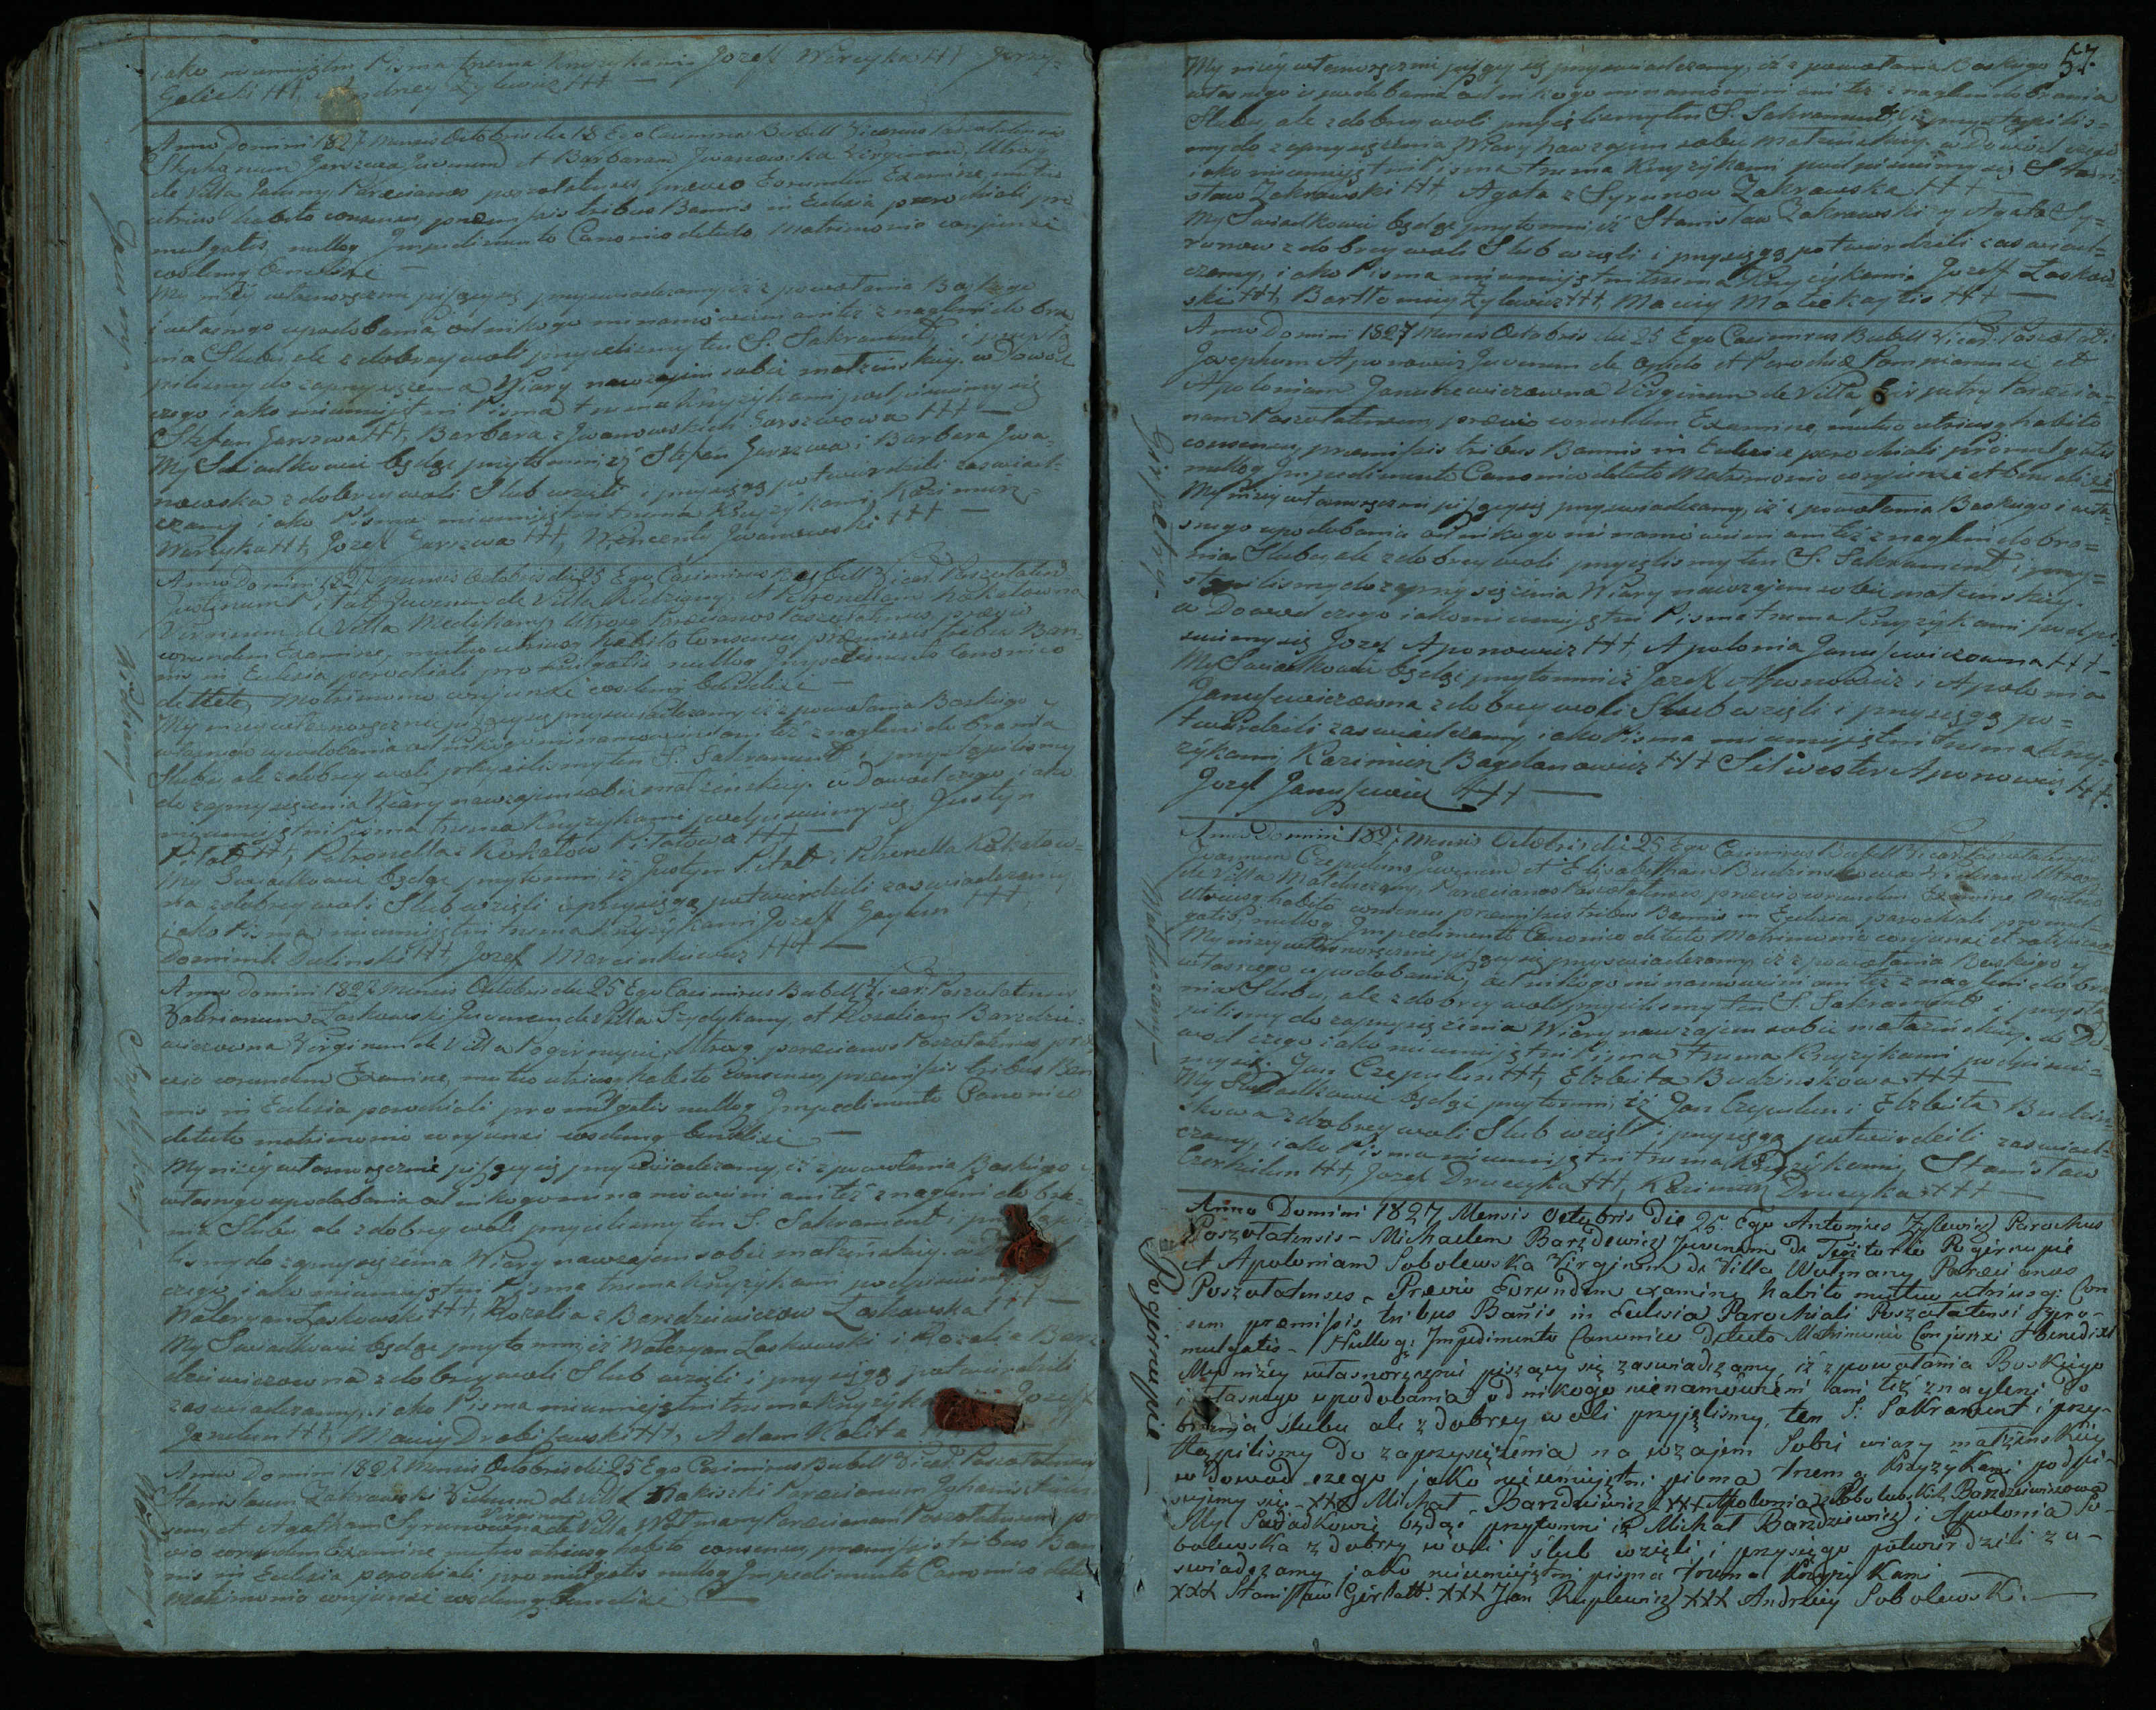 iako nieumiejętni Pisma trzema Krzyżykami Jozeff Wereyka ttt Jerzy
Galicki ttt, Andrzey Żylewicz ttt —
Jawnuny
Anno Domini 1827 Mensis Octobris die 18 Ego Casimirus Bubell Vicarius Poszołatensis
Stephanum Garszwa Juvenem et Barbaram Jwanowska Virginem, Utrosq
de Villa Jawnuny Parecianos poszołatenses, praevio Eorundem Examine, mutuo
utriusq habito consensu, praemissis tribus Bannis in Eclesia parochiali pro-
mulgatis, nulloq Impedimento Canonico detecto, Matrimonio conjunxi
eosdemq Benedixi —
My niżey własnoręcznie piszący się przyswiadczamy, iż z powołania Boskiego
i własnego upodobania, od nikogo nienamówieni ani też znagleni do bra-
nia Slubu, ale z dobrey woli przyieliśmy ten S. Sakrament, i przystą-
piliśmy do zaprzysiężenia Wiary nawzaiem sobie małżeńskiey. w Dowod
czego iako nieumiejętni Pisma trzema Krzyżykami podpisuiemy się
Stefan Garszwa ttt, Barbara z Jwanowskich Garszwowa ttt —
My Swiadkowie będąc przytomni, iż Stefan Garszwa i Barbara Jwa-
nowska z dobrey woli Slub wzięli i przysięgą potwierdzili zaswiad-
czamy iako Pisma nieumiejętni trzema Krzyżykami, Kazimierz
Wereyka ttt, Jozeff Garszwa ttt, Wincenty Jwanowski ttt —
Anno Domini 1827 mensis Octobris die 25 Ego Casimirus Bubell Vicar. Poszołatens
Justinum Pitatt Juvenem de Villa et Petronellam Kokatowna
Virginem de Villa Medekany, Utrosq Parecianos Poszołatenses, praevio
eorundem Examine, mutuo utriusq habito Consensu, praemissis tribus Ban-
nis in Eclesia parochiali promulgatis, nulloq Impedimento Canonico
detecto, Matrimonio conjunxi eosdemq Benedixi —
My niżey własnoręcznie piszący się przyswiadczamy, iż z powołania Boskiego y
własnego upodobania od nikogo nienamówieni ani też znagleni do brania
Slubu ale z dobrey woli przyieliśmy ten S. Sakrament i przystąpiliśmy
do zaprzysiężenia Wiary nawzaiem sobie małżeńskiey. w Dowod czego iako
nieumiejętni Pisma trzema Krzyżykami podpisuiemy się Justyn
Pitatt ttt, Petronella z Kokatow Pitatowa ttt —
My Swiadkowie będąc przytomni iż Justyn Pitatt i Petronella Kokatow-
na z dobrey woli Slub wzięli i przysięgą potwierdzili zaswiadczamy
iako Pisma nieumiejętni trzema Krzyżykami Jozeff Gaylun ttt,
Dominik Dulinski ttt, Jozef Marcinkiewicz ttt —
Anno Domini 1827 Mensis Octobris die 25 Ego Casimirus Bubell Vicar. Poszołatensis
Valerianum Laskowski Juvenem de Villa Szydykany, et Rozaliam Barzdzie-
wiczowna Virginem de Villa Pogirnupie, Utrosq parecianos Poszołatenses prae-
vio eorundem Examine, mutuo utriusq habito Consensu, praemissis tribus Ban-
nis in Eclesia parochiali promulgatis nulloq Impedimento Canonico
detecto matrimonio conjunxi eosdemq benedixi —
My niżey własnoręcznie piszący się przyswiadczamy, iż z powołania Boskiego y
własnego upodobania od nikogo nienamówieni ani też znagleni do bra-
nia Slubu, ale z dobrey woli przyieliśmy ten S. Sakrament, i
liśmy do zaprzysiężenia Wiary nawzaiem sobie małżeńskiey. w
czego iako nieumiejętni Pisma trzema Krzyżykami podpisuiemy
Waleryan Laskowski ttt, Rozalia z Barzdziewiczow Laskowska ttt —
My Swiadkowie będąc przytomni, iż Waleryan Laskowski i Rozalia Barz-
dziewiczowna z dobrey woli Slub wzięli i przysięgą potwierdzili
zaswiadczamy, iako Pisma nieumiejętni trzema Jozeff
ttt, Maciey Drobiszewski ttt, Adam Kalita
Wołmany
Anno Domini 1827 Mensis Octobris die 25 Ego Casimirus Bubell Vicar. Poszołatensis
Stanislaum Zakrawski Viduum de Villa Parecianum
et Agatham Syrunowna Virginem de Villa Wołmany Parecianam Poszołatensem, prae-
vio eorundem Examine mutuo utriusq habito consensu, praemissis tribus Ban-
nis in Eclesia parochiali promulgatis nulloq Impedimento Canonico detecto
Matrimonio conjunxi eosdemq Benedixi —
57.
My niżey własnoręcznie piszący się przyswiadczamy, iż z powołania Boskiego
własnego upodobania od nikogo nienamówieni ani też znagleni do brania
Slubu, ale z dobrey woli przyieliśmy ten S. Sakrament, i przystąpiliś-
my do zaprzysiężenia Wiary nawzaiem sobie Małżeńskiey. w Dowod czego
iako nieumiejętni Pisma trzema Krzyżykami podpisuiemy się Stani-
sław Zakrawski ttt Agata z Syrunow Zakrawska ttt —
My Swiadkowie będąc przytomni, iż Stanisław Zakrawski y Agata Sy-
runow z dobrey woli Slub wzięli i przysięgą potwierdzili zaswiad-
czamy, iako Pisma nieumiejętni trzema Krzyżykami. Jozeff Laskow-
ski ttt, Bartłomiey Żylewicz ttt, Maciey Malukaytis ttt —
Girputry
Anno Domini 1827 Mensis Octobris die 25 Ego Casimirus Bubell Vicar. Poszołat.
Josephum Aponowicz Juvenem de Opido et Parochia Pompianensi et
Apoloniam Januszewiczowna Virginem de Villa Girputry Parecia-
nam Poszołatensem, praevio eorundem Examine, mutuo utriusq habito
consensu, praemissis tribus Bannis in Eclesia parochiali promulgatis
nulloq Impedimento Canonico detecto Matrimonio conjunxi et Benedixi
My niżey własnoręcznie piszący się przyswiadczamy, iż z powołania Boskiego i wła-
snego upodobania od nikogo nienamówieni ani też znagleni do bra-
nia Slubu, ale z dobrey woli przyieliśmy ten S. Sakrament i przy-
stąpiliśmy do zaprzysiężenia Wiary nawzaiem sobie małżenskiey.
w Dowod czego iako nieumiejętni Pisma trzema Krzyżykami podpi-
suiemy się Jozef Aponowicz ttt Apolonia Januszewiczowna ttt —
My Swiadkowie będąc przytomni iż Jozeff Aponowicz i Apolonia
Januszewiczowna z dobrey woli Slub wzięli i przysięgą po-
twierdzili zaswiadczamy iako Pisma nieumiejętni trzema Krzy-
żykami, Kazimierz Bagdanowicz ttt Silwester Aponowicz ttt.
Jozef Januszewicz ttt —
Małdutany
Anno Domini 1827 Mensis Octobris die 25 Ego Casimirus Bubell Vicar. Poszołatensis
Joannem Czepulun Juvenem et Elisabetham Budzinskowa Viduam Utrosq
de Villa Parecianos Poszołatenses, praevio eorundem Examine, Mutuo
Utriusq habito consensu praemissis tribus Bannis in Eclesia parochiali promul-
gatis, nulloq Impedimento Canonico detecto Matrimonio conjunxi et
My niżey własnoręcznie piszący się przyswiadczamy iż z powołania Boskiego y
własnego upodobania, od nikogo nienamówieni ani też znagleni do bra-
nia Slubu, ale z dobrey woli przyieliśmy ten S. Sakrament i przystą-
piliśmy do zaprzysiężenia Wiary nawzaiem sobie małżeńskiey. w Do-
wod czego iako nieumiejętni Pisma trzema Krzyżykami podpisuie-
my się. Jan Czepulun ttt, Elzbieta Budzinskowa ttt —
My Swiadkowie będąc przytomni, iż Jan Czepulun i Elzbieta Budzin-
skowa z dobrey woli Slub wzięli i przysięgą potwierdzili zaswiad-
czamy, iako Pisma nieumiejętni trzema Krzyżykami, Stanisław
ttt, Jozef Drucuyka ttt, Kazimierz Drucuyka ttt —
Pogirnupie
Anno Domini 1827 Mensis Octobris Die 25 Ego Antonius Zÿlewicz Parochus
Poszołatensis – Michaelem Barzdewicz Juvenem De Teritorio Pogirnupie
et Apoloniam Sobolewska Virginem de Villa Wołmany Parecianos
Poszołatenses – Previo Eorundem examine habito mutuo utriusq: Con
sensu premissis tribus Bañis in Eclesia Parochiali Poszołatensi pro-
mulgatis – Nulloq: Impedimento Canonico Detecto Matrimonio Conjunxi et benedixi
My niżey własnoręcznie piszący się zaswiadczamy, iż z powołania Boskiego
i własnego upodobania od nikogo nienamówieni ani też znagleni do
brania slubu ale z dobrey woli przyjęliśmy ten S: Sakrament i przy-
stąpiliśmy do zaprzysiężenia na wzajem Sobie wiary małżenskiey
w dowod czego jako nieumiejętni pisma trzema Krzyżykami podpi-
sujemy się – xxx Michał Barzdziewicz xxx Apolonia z Sobolewskich Barzdziewiczowa
My Swiadkowie będąc przytomni iż Michał Barzdziewicz i Apolonia So-
bolewska z dobrey woli slub wzięli i przysięgo potwierdzili za-
swiadczamy jako nieumiejętni pisma trzema Krzyży Kami
xxx Stanisław Girłatt. xxx Jan Ruplewicz xxx Andrzey Sobolewski. —